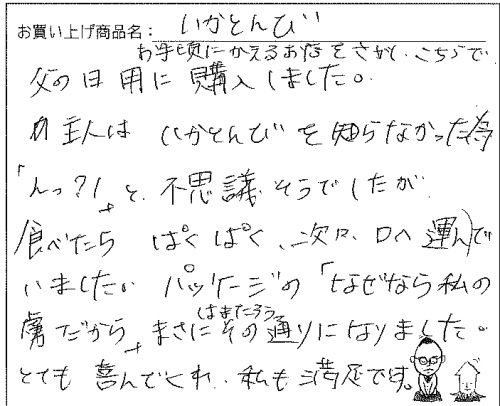 お買い上げ商品名: いかとんび
お手頃にかえるお店をさがし、こちらで
父の日用に購入しました。
主人は いかとんびを知らなかった為
「んっ?!」と、不思議そうでしたが
食べたら ぱくぱく、次々、口へ運んで
いました。パッケージの「なぜなら私の
虜だから」まさにその通りになりました。
はまたろう
とても喜んでくれ、私も満足です。